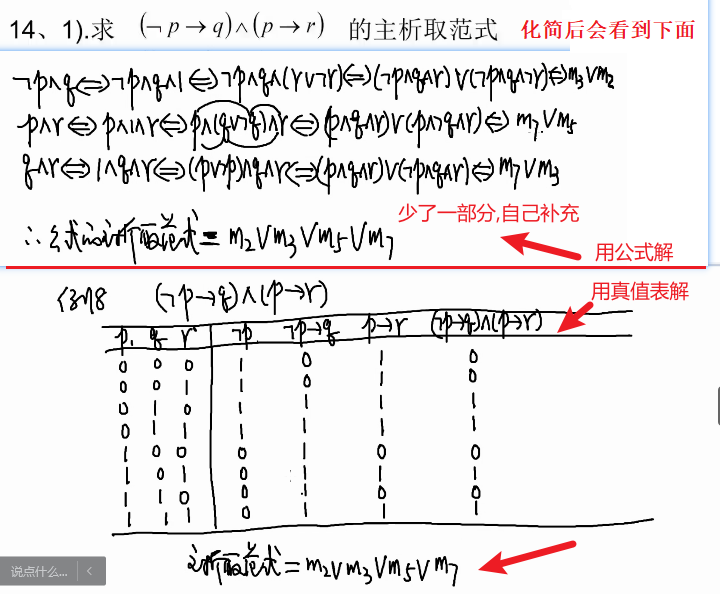 14、1).求 (¬p→q)∧(p→r) 的主析取范式 化简后会看到下面
¬p∧q⇔¬p∧q∧1⇔¬p∧q∧(r∨¬r)⇔(¬p∧q∧r)∨(¬p∧q∧¬r)⇔m₃∨m₂
p∧r⇔p∧1∧r⇔p∧(q∨¬q)∧r⇔(p∧q∧r)∨(p∧¬q∧r)⇔m₇∨m₅
q∧r⇔1∧q∧r⇔(p∨¬p)∧q∧r⇔(p∧q∧r)∨(¬p∧q∧r)⇔m₇∨m₃
少了一部分,自己补充
∴公式的主析取范式=m₂∨m₃∨m₅∨m₇
用公式解
例18 (¬p→q)∧(p→r)
用真值表解
p q r ¬p ¬p→q p→r (¬p→q)∧(p→r)
0 0 0 1 0 1 0
0 0 1 1 0 1 0
0 1 0 1 1 1 1
0 1 1 1 1 1 1
1 0 0 0 1 0 0
1 0 1 0 1 1 1
1 1 0 0 1 0 0
1 1 1 0 1 1 1
主析取范式=m₂∨m₃∨m₅∨m₇
说点什么...